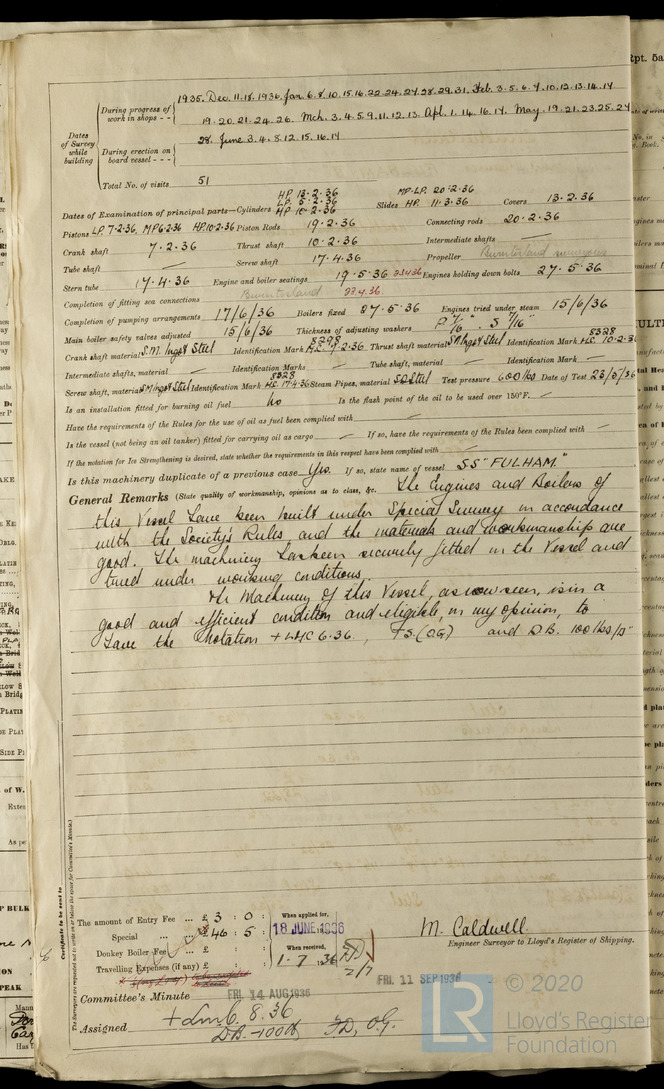 Rpt. 5a
1935. Dec. 11.18. 1936. Jan. 6.8.10.15.16.22.24.27.28.29.31. Feb. 3.5.6.7.10.12.13.14.17
During progress of work in shops - -
19.20.21.24.26. Mch. 3.4.5.9.11.12.13. Apl. 1.14.16.17. May. 19.21.23.25.27
Dates of Survey while building
28. June 3.4.8.12.15.16.17
During erection on board vessel - - -
Total No. of visits 51
Dates of Examination of principal parts—Cylinders HP 13.2.36 LP. 5.2.36 MP 10.2.36 Slides MP.LP. 20.2.36 HP. 11.3.36 Covers 13.2.36
Pistons LP. 7.2.36, MP 6.2.36 HP. 10.2.36 Piston Rods 19.2.36 Connecting rods 20.2.36
Crank shaft 7.2.36 Thrust shaft 10.2.36 Intermediate shafts —
Tube shaft — Screw shaft 17.4.36 Propeller Burntisland surveyors
Stern tube 17.4.36 Engine and boiler seatings 19.5.36 23.4.36 Engines holding down bolts 27.5.36
Completion of fitting sea connections Burntisland 23.4.36.
Completion of pumping arrangements 17/6/36 Boilers fixed 27.5.36 Engines tried under steam 15/6/36
Main boiler safety valves adjusted 15/6/36 Thickness of adjusting washers P 7/16" S 7/16"
Crank shaft material S.M. Ingot Steel Identification Mark 8298 H.C. 7.2.36 Thrust shaft material S.M. Ingot Steel Identification Mark 8328 H.C. 10.2.36
Intermediate shafts, material — Identification Marks — Tube shaft, material — Identification Mark —
Screw shaft, material S.M. Ingot Steel Identification Mark 8328 H.C. 17.4.36 Steam Pipes, material S.D. Steel Test pressure 600 lbs Date of Test 23/5/36
Is an installation fitted for burning oil fuel No Is the flash point of the oil to be used over 150°F. —
Have the requirements of the Rules for the use of oil as fuel been complied with —
Is the vessel (not being an oil tanker) fitted for carrying oil as cargo — If so, have the requirements of the Rules been complied with —
If the notation for Ice Strengthening is desired, state whether the requirements in this respect have been complied with —
Is this machinery duplicate of a previous case Yes. If so, state name of vessel SS "FULHAM."
General Remarks (State quality of workmanship, opinions as to class, &c. The Engines and Boilers of
this Vessel have been built under Special Survey in accordance
with the Society's Rules and the materials and workmanship are
good. The machinery has been securely fitted in the Vessel and
tried under working conditions.
The Machinery of this Vessel, as now seen, is in a
good and efficient condition and eligible, in my opinion, to
have the notation + LMC 6.36., T.S. (O.G.) and D.B. 100 lbs/□"
Certificate to be sent to
(The Surveyors are requested not to write on or below the space for Committee's Minute.)
The amount of Entry Fee ... £ 3 : 0 :
Special ... £ 46 : 5 :
Donkey Boiler Fee ... £ : :
Travelling Expenses (if any) £ : :
When applied for,
18 JUNE 1936
When received,
1.7.1936
2/7
M. Caldwell
Engineer Surveyor to Lloyd's Register of Shipping.
FRI. 11 SEP 1936
Committee's Minute FRI. 14 AUG 1936
Assigned + Lmc 6.8.36
DB-100 lb, FD, OG.
LR
© 2020
Lloyd's Register
Foundation